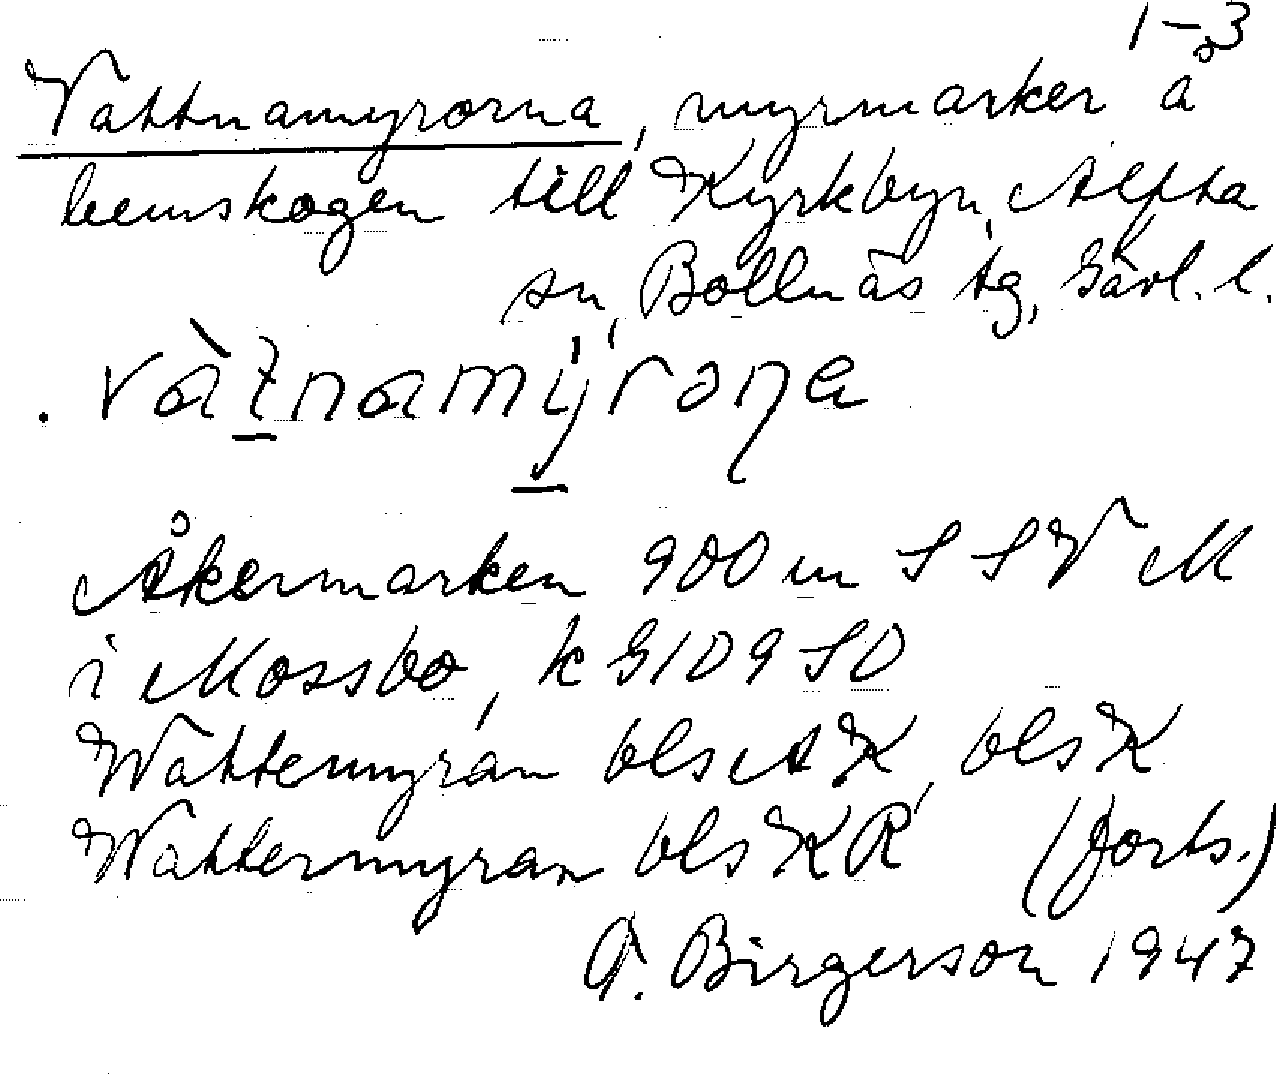 1–3
Vattnamyrorna, myrmarker å
hemskogen till Kyrkbyn, Alfta
sn, Bollnäs tg, Gävl. l.
. vàt̠namý̠roṇa
Åkermarken 900 m SSV M
i Mossbo, k G109 SO
Wattenmyran bls AK, bls K
Wattermyran bls KR (forts.)
A. Birgerson 1947